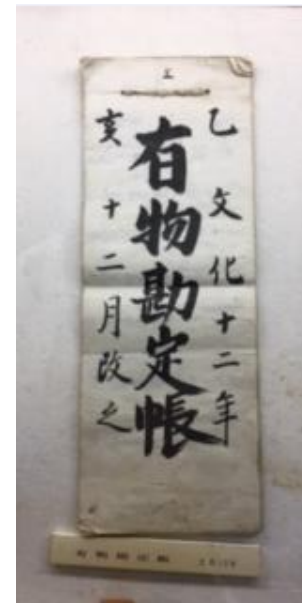 乙 文化十二年
有物勘定帳
亥 十二月改之
有物勘定帳